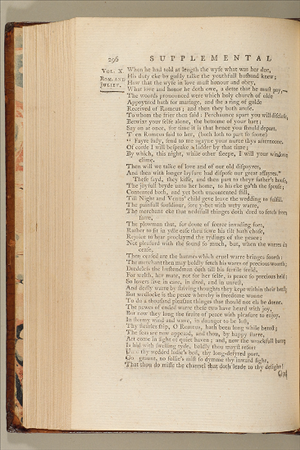 296 SUPPLEMENTAL
VOL. X.
ROM. AND
JULIET.
When he had told at length the wyfe what was her due,
His duty eke by gostly talke the youthfull husband knew;
How that the wyfe in love must honour and obey,
What love and honor he doth owe, a dette that he must pay,—
The woords pronounced were which holy church of olde
Appoynted hath for mariage, and she a ring of golde
Received of Romeus; and then they both arose.
To whom the frier then said: Perchaunce apart you will disclose,
Betwixt your selfe alone, the bottome of your hart;
Say on at once, for time it is that hence you should depart.
Then Romeus said to her, (both loth to part so soone)
" Fayre lady, send to me agayne your nurce thys afternoone.
Of corde I will bespeake a ladder by that time;
By which, this night, while other sleepe, I will your window
clime.
Then will we talke of love and of our old dispayres,
And then with longer laysure had dispose our great affayres."
These sayd, they kisse, and then part to theyr fathers house,
The joyfull bryde unto her home, to his eke go'th the spouse;
Contented both, and yet both uncontented still,
Till Night and Venus' child geve leave the wedding to fulfill.
The painfull souldiour, sore y-bet with wery warre,
The merchant eke that nedefull thinges doth dred to fetch from
farre,
The plowman that, for doute of feerce invading foes,
Rather to sit in ydle ease then sowe his tilt hath chose,
Rejoice to hear proclaymd the tydings of the peace;
Not pleasurd with the sound so much, but, when the warres do
cease,
Then ceased are the harmes which cruel warre bringes foorth:
The merchant then may boldly fetch his wares of precious woorth;
Dredelesse the husbandman doth till his fertile feeld.
For welth, her mate, not for her selfe, is peace so precious held:
So lovers live in care, in dred, and in unrest,
And dedly warre by striving thoughtes they kepe within their brest:
But wedlocke is the peace wherby is freedome wonne
To do a thousand pleasant thinges that should not els be donne.
The newes of ended warre these two have heard with joy,
But now they long the fruite of peace with pleasure to enjoy.
In stormy wind and wave, in daunger to be lost,
Thy stearles ship, O Romeus, hath been long while betost;
The seas are now appeasd, and thou, by happy starre,
Art come in sight of quiet haven; and, now the wrackfull barre
Is hid with swelling tyde, boldly thou mayst resort
Unto thy wedded ladies bed, thy long-desyred port.